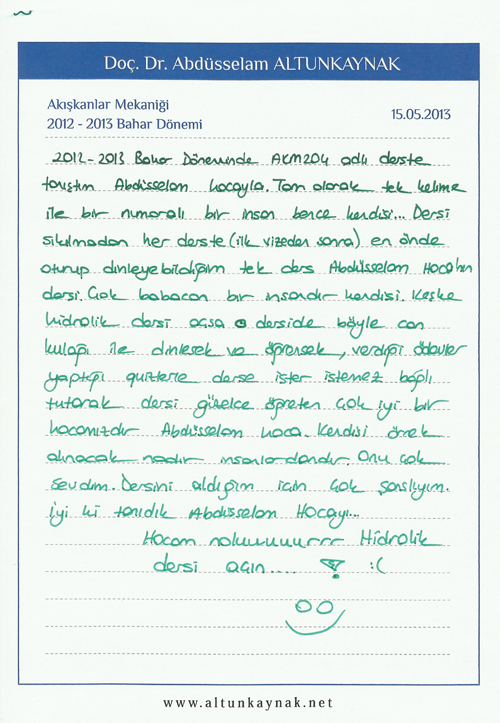 Doç. Dr. Abdüsselam ALTUNKAYNAK
Akışkanlar Mekaniği
15.05.2013
2012 - 2013 Bahar Dönemi
2012-2013 Bahar Döneminde AKM204 adlı derste
tanıştım Abdüsselam hocayla. Tam olarak tek kelime
ile bir numaralı bir insan bence kendisi... Dersi
sıkılmadan her derste (ilk vizeden sonra) en önde
oturup dinleyebildiğim tek ders Abdüsselam Hoca'nın
dersi. Çok babacan bir insandır kendisi. Keşke
hidrolik dersi açsa o derside böyle can
kulağı ile dinlesek ve öğrensek, verdiği ödevler
yaptığı quizlerle derse ister istemez bağlı
tutarak dersi güzelce öğreten çok iyi bir
hocamızdır Abdüsselam hoca. Kendisi örnek
alınacak nadir insanlardandır. Onu çok
sevdim. Dersini aldığım için çok şanslıyım.
İyi ki tanıdık Abdüsselam Hocayı...
Hocam noluuuuuurrr Hidrolik
dersi açın.... ! :(
www.altunkaynak.net